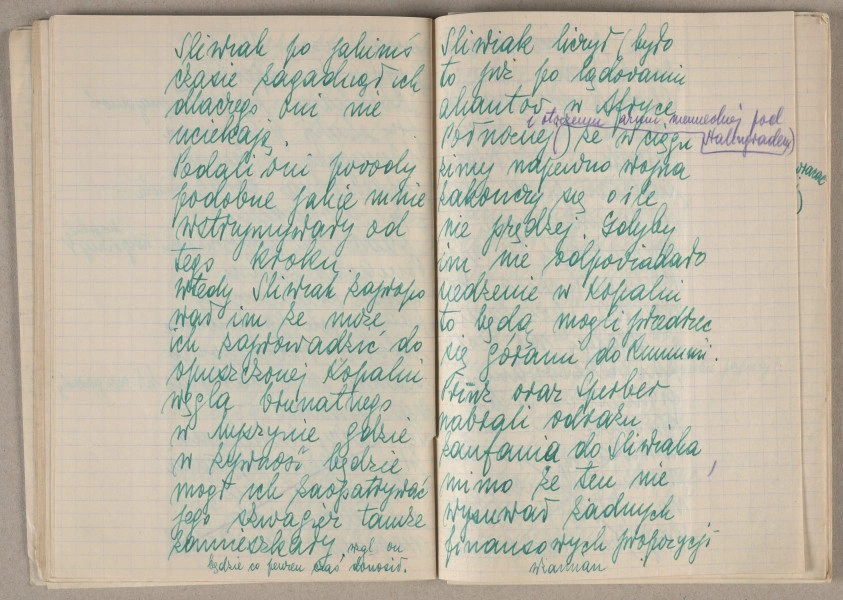 Śliwiak po jakimś
czasie zagadnął ich
dlaczego oni nie
uciekają.
Podali oni powody
podobne jakie mnie
wstrzymywały od
tego kroku
wtedy Śliwiak zapropo
wał im że może
ich zaprowadzić do
opuszczonej kopalni
węgla brunatnego
w Myszynie gdzie
w żywność będzie
mógł ich zaopatrywać
jego szwagier tamże
zamieszkały, węgl. on
będzie co pewien czas donosił.
Śliwiak liczył (było
to już po lądowaniu
aliantów w Afryce
i otoczeniu armii niemieckiej pod
Północnej () że w ciągu Stalingradem)
zimy napewno wojna
zakończy się o ile
nie prędzej. Gdyby
im nie odpowiadało
siedzenie w kopalni
to będą mogli przedrzeć
się górami do Rumunii.
Prinz oraz Gerber
nabrali odrazu
zaufania do Śliwiaka
mimo że ten nie
wysuwał żadnych
finansowych propozycji
wracać
)